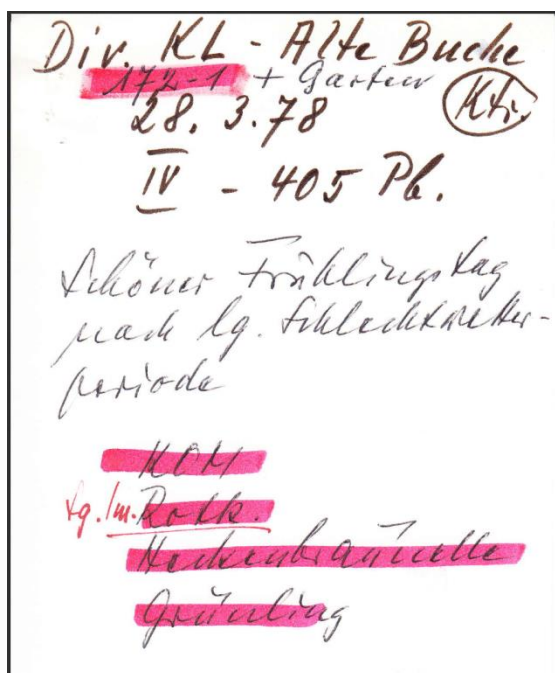 Div. KL - Alte Buche
172-1 + Garten
28. 3. 78 Ktr.
IV - 405 Pb.
Schöner Frühlingstag
nach lg. Schlechtwetter-
periode
KOM
Rotk.
Heckenbraunelle
Grünling